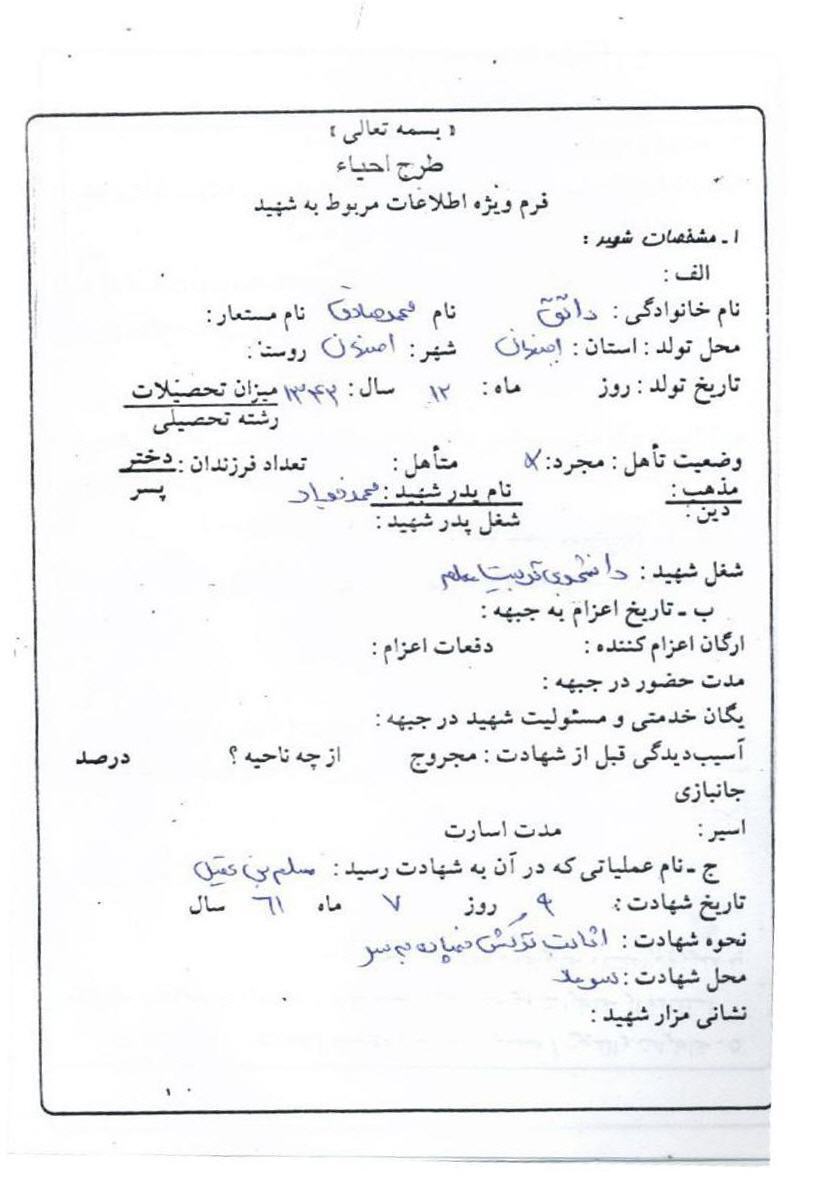 « بسمه تعالی »
طرح احیاء
فرم ویژه اطلاعات مربوط به شهید
۱ ـ مشخصات شهید :
الف :
نام خانوادگی : نام محمدصادق نام مستعار :
محل تولد : استان : اصفهان شهر : اصفهان روستا :
تاریخ تولد : روز ماه : ۱۲ سال : ۱۳۴۲ میزان تحصیلات
رشته تحصیلی
وضعیت تأهل : مجرد : x متأهل : تعداد فرزندان : دختر
پسر
مذهب : نام پدر شهید : محمد
دین : شغل پدر شهید :
شغل شهید : دانشجوی تربیت معلم
ب ـ تاریخ اعزام به جبهه :
ارگان اعزام کننده : دفعات اعزام :
مدت حضور در جبهه :
یگان خدمتی و مسئولیت شهید در جبهه :
آسیب‌دیدگی قبل از شهادت : مجروح از چه ناحیه ؟ درصد
جانبازی
اسیر : مدت اسارت
ج ـ نام عملیاتی که در آن به شهادت رسید : مسلم بن عقیل
تاریخ شهادت : ۹ روز ۷ ماه ۶۱ سال
نحوه شهادت : اثابت ترکش خمپاره به سر
محل شهادت : سومار
نشانی مزار شهید :
۱۰